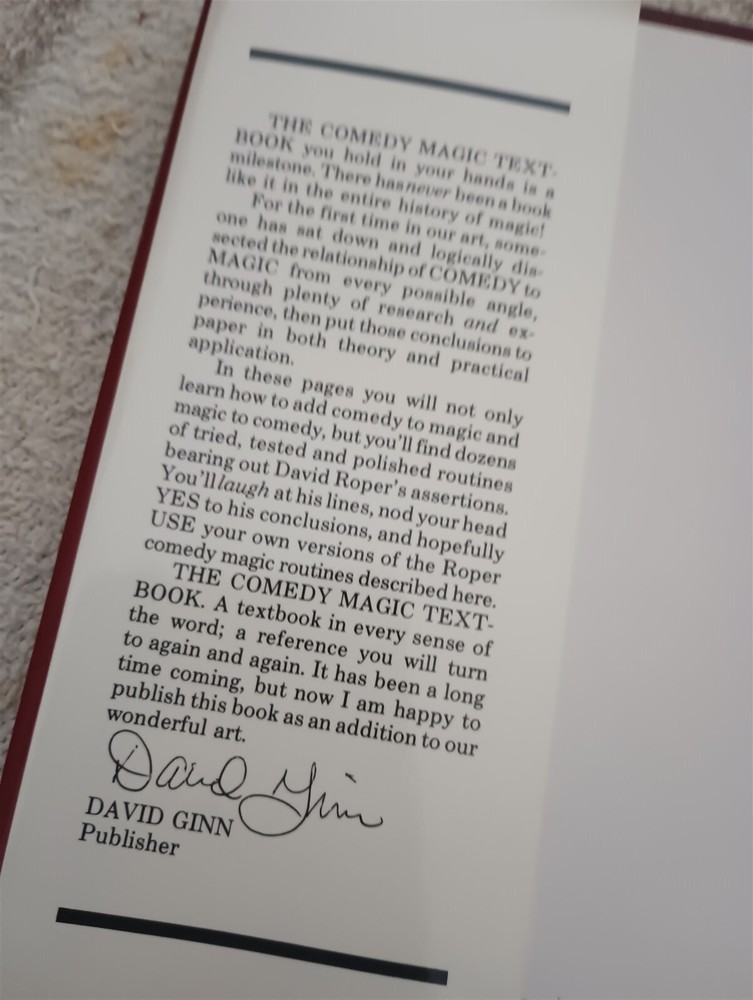 THE COMEDY MAGIC TEXT-
BOOK you hold in your hands is a
milestone. There has never been a book
like it in the entire history of magic!
For the first time in our art, some-
one has sat down and logically dis-
sected the relationship of COMEDY to
MAGIC from every possible angle,
through plenty of research and ex-
perience, then put those conclusions to
paper in both theory and practical
application.
In these pages you will not only
learn how to add comedy to magic and
magic to comedy, but you'll find dozens
of tried, tested and polished routines
bearing out David Roper's assertions.
You'll laugh at his lines, nod your head
YES to his conclusions, and hopefully
USE your own versions of the Roper
comedy magic routines described here.
THE COMEDY MAGIC TEXT-
BOOK. A textbook in every sense of
the word; a reference you will turn
to again and again. It has been a long
time coming, but now I am happy to
publish this book as an addition to our
wonderful art.
David Ginn
DAVID GINN
Publisher